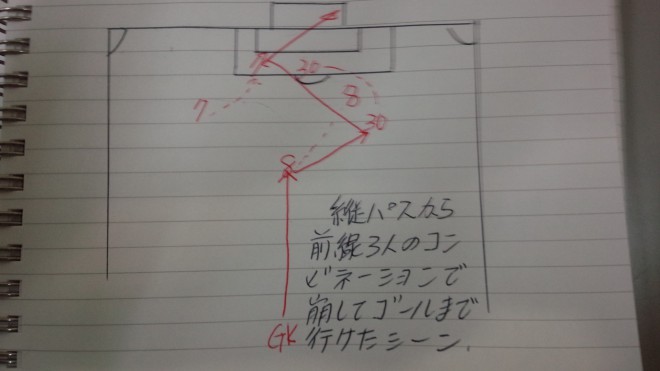 30
8
7
30
8
縦パスから
前線3人のコン
ビネーションで
崩してゴールまで
GK
行けたシーン.